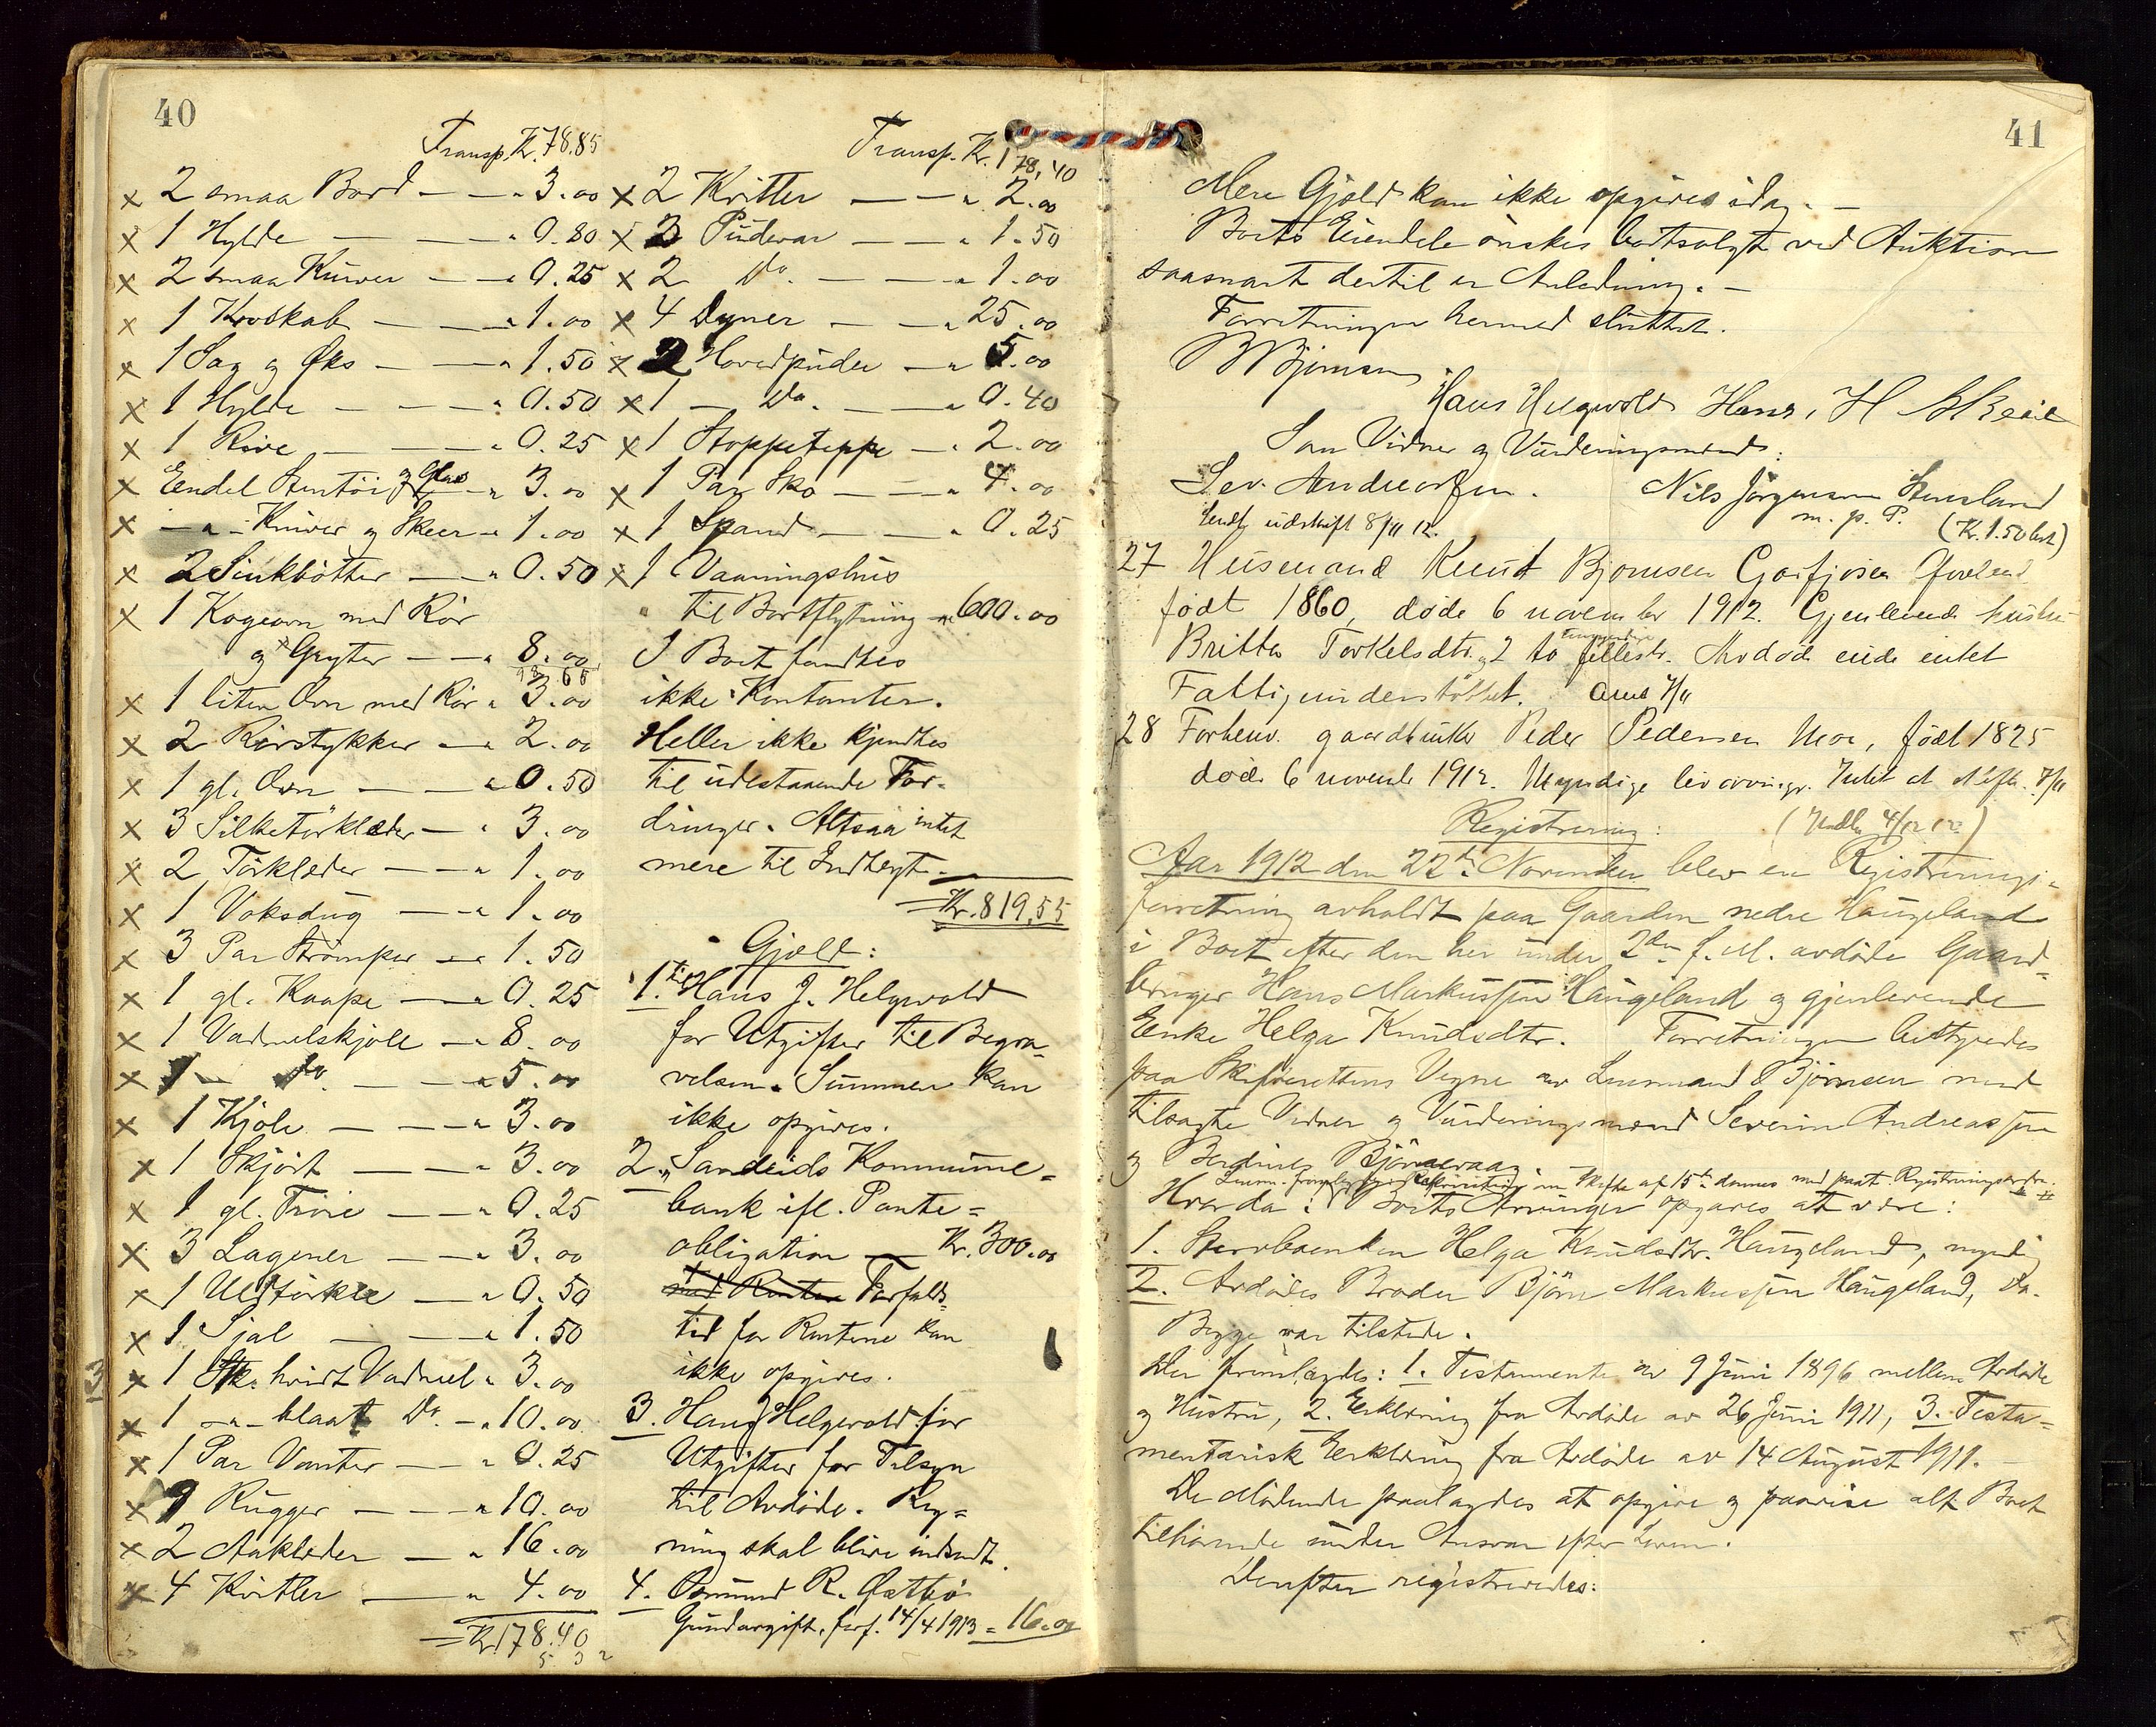 40
Transp. Kr. 78.85
x 2 smaa Bord — — " 3.00
x 1 Hylde — — — " 0.80
x 2 smaa Kurver — — " 0.25
x 1 Krosskab — — — " 1.00
x 1 Sag og Øks — — " 1.50
x 1 Hylde — — — " 0.50
x 1 Rive — — — " 0.25
x Endel Stentöi og Glas — " 3.00
x — " — Kniver og Skeer — " 1.00
x 2 Sinkbötter — — " 0.50
x 1 Kogeovn med Rör
og x Gryter — — " 8.00
98 65
x 1 liten Ovn med Rör " 3.00
x 2 Rörstykker — " 2.00
x 1 gl. Ovn — — " 0.50
x 3 Silketörklæder — " 3.00
x 2 Törklæder — — " 1.00
x 1 Voksdug — — " 1.00
x 3 Par Strömper — " 1.50
x 1 gl. Kaape — — " 0.25
x 1 Vadmelskjole — " 8.00
x 1 — Do. — — " 5.00
x 1 Kjole — — — " 3.00
x 1 Skjört — — " 3.00
x 1 gl. Tröie — — " 0.25
x 3 Lagener — — " 3.00
x 1 Uldtörklæ — " 0.50
x 1 Sjal — — — " 1.50
x 1 Stk. hvidt Vadmel " 3.00
x 1 — " — blaat Do. — " 10.00
x 1 Par Vanter — — " 0.25
x 9 Rugger — — — " 10.00
x 2 Aaklæder — — " 16.00
x 4 Kitler — — " 4.00
= Kr. 178.40
Transp. Kr. 178,40
x 2 Kitter — — " 2.00
x 3 Pudevar — — " 1.50
x 2 Do. — — — " 1.00
x 4 Dyner — — " 25.00
x 2 Hovedpuder — " 5.00
x 1 — Do. — — " 0.40
x 1 Stoppeteppe — " 2.00
x 1 Par Sko — — " 4.00
x 1 Spand — — — " 0.25
x 1 Vaaningshus
til Bortflytning — " 600.00
I Boet fandtes
ikke Kontanter.
Heller ikke kjendtes
til udestaaende For-
dringer. Altsaa intet
mere til Indtægt.
= Kr. 819,55
Gjæld:
1. til Hans J. Helgevold
for Utgifter til Begra-
velsen. Summen kan
ikke opgives.
2. Sandeids Kommune-
bank ifl. Pante-
obligation — Kr. 300.00
med Renter Forfalds-
tid for Rentene kan
ikke opgives.
3. Hans J Helgevold for
Utgifter for Tilsyn
til Avdöde. Reg-
ning skal blive indsendt.
4. Osmund R. Østbö
Grundavgift, forf. 14/4 1913 = 16.00
41
Mere Gjæld kan ikke opgives idag. —
Boets Eiendele önskes bortsolgt ved Auktion
saasnart dertil er Anledning. —
Forretningen hermed sluttet.
B Bjørnsen
Hans Helgevold Hans. H
Som Vidner og Vurderingsmænd:
Sev. Andreassen. Nils Jörgensen Stensland
m. p. P.
Sendt udskrift 8/11 12. (Kr. 1.50 bet)
27 Husmand Knud Bjørnsen
født 1860, døde 6 november 1912. Gjenlevende hustru
Britta Torkelsdtr. og 2 to umyndige fællesb. Avdöde eiede intet
Fattigunderstöttet. 7/11
28 Forhenv. gaardbruker Peder Pedersen Moe, født 1825
døde 6 novemb 1912. Myndige livsarvinger. Intet at skifte. 7/11
Registrering: (Indb. 4/12 12)
Aar 1912 den 22de November blev en Registrerings-
forretning avholdt paa Gaarden nedre Haugeland
i Boet efter den her under 2den f. M. avdöde Gaard-
bruger Hans Markussen Haugeland og gjenlevende
Enke Helga Knudsdtr. Forretningen bestyredes
paa Skifterettens Vegne av Lensmand Bjørnsen med
tilsagte Vidner og Vurderingsmænd Severin Andreassen
og Berdines Björnevaag.
Lensm. fremlagde Rekvisition om Skifte af 15de dennes med paat. Registreringsordre.
Hvorda: Boets Arvinger opgaves at være:
1. Stervboenken Helga Knudsdtr. Haugeland, myndig
2. Avdödes Broder Björn Markussen Haugeland, Do.
Begge var tilstede.
Der fremlagdes: 1. Testamente av 9 Juni 1896 mellem Avdöde
og Hustru, 2. Erklæring fra Avdöde av 26 Juni 1911, 3. Testa-
mentarisk Erklæring fra Avdöde av 14 August 1911. —
De Mödende paalagdes at opgive og paavise alt Boet
tilhörende under Ansvar efter Loven.
Derefter registreredes: